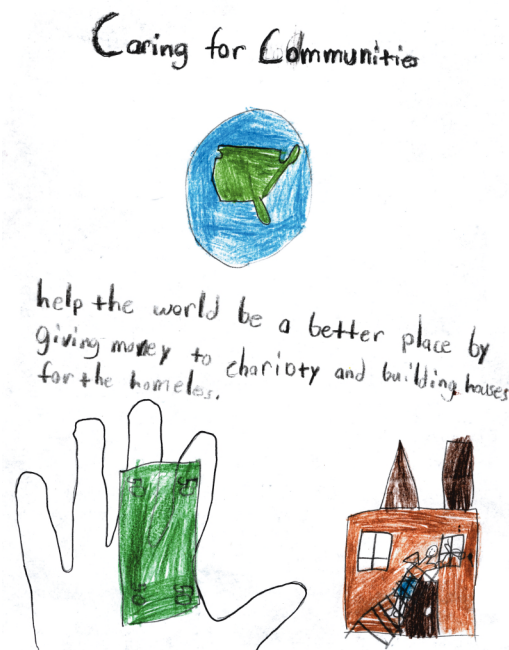 Caring for Communities
help the world be a better place by
giving money to charioty and building houses
for the homeles.